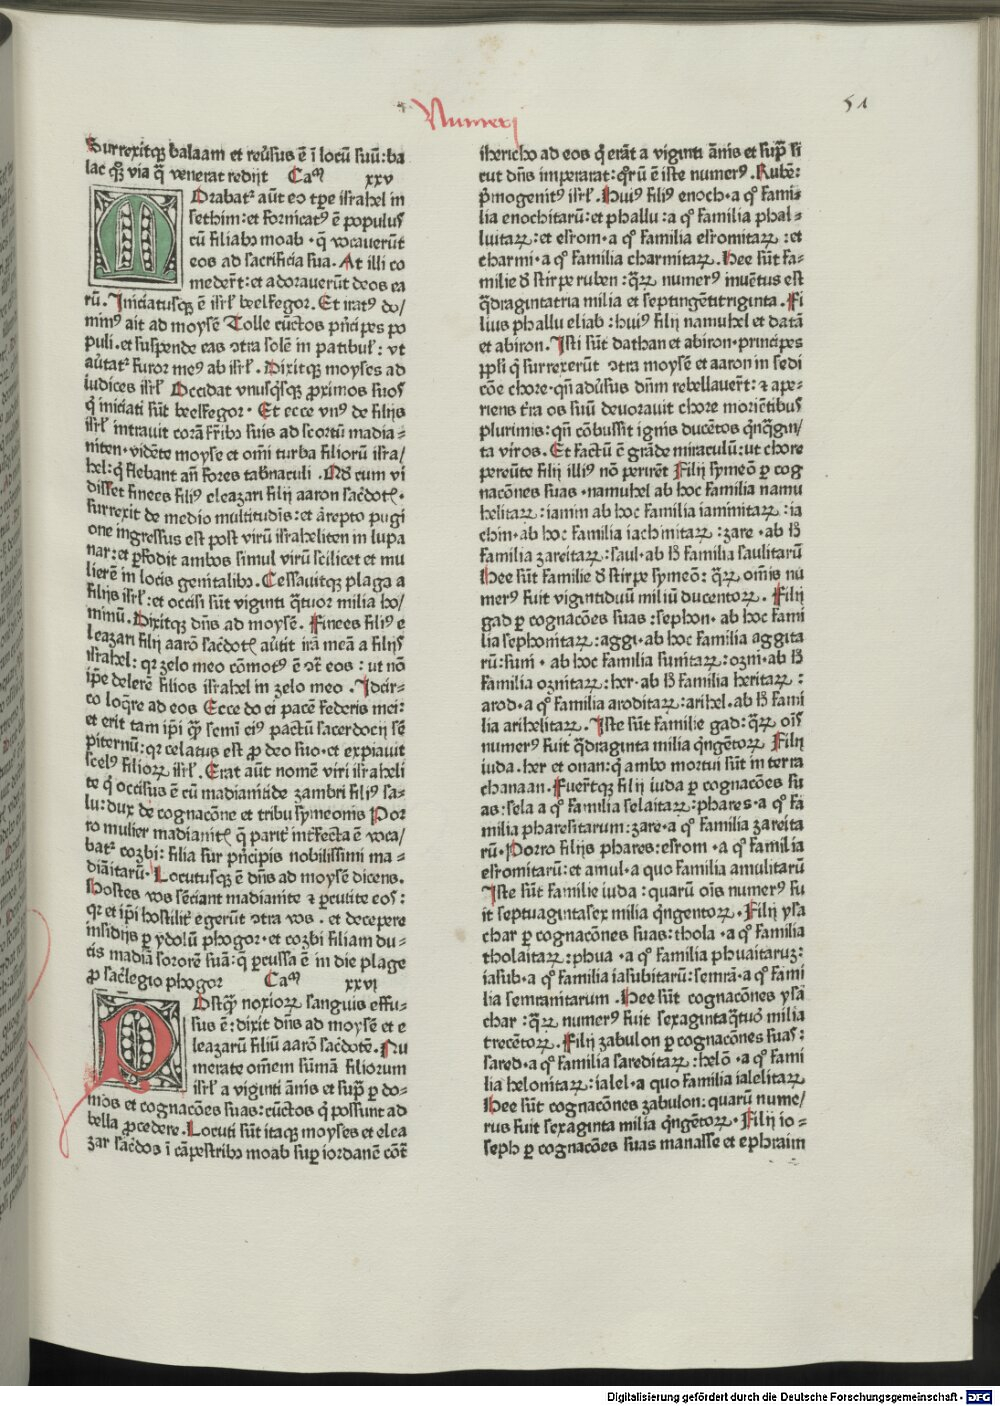 Numeri
51
Surrexitqꝫ balaam et reu̾sus ē ī locū suū: ba
lac qꝫ via q̄ venerat redijt Cam̄ xxv
Morabat᷑ aūt eo tp̄e israhel in
sethim: et fornicatꝰ ē populus
cū filiabꝫ moab · q̄ vocauerūt
eos ad sacrificia sua. At illi co
meder̄t: et adorauerūt deos ea
rū. Iniciatusqꝫ ē isrl̄ beelfegor. Et iratꝰ do/
minꝰ ait ad moysē Tolle cūctos pn̄cipes po
puli. et suspende eas ꝯtra solē in patibul̄: vt
au̾tat᷑ furor meꝰ ab isrl̄. Dixitqꝫ moyses ad
iudices isrl̄ Occidat vnusq̊sqꝫ ꝓximos suos
q̊ iniciati sūt beelfegor · Et ecce vnꝰ de filijs
isrl̄ intrauit corā fr̄ibꝫ suis ad scortū madia=
niten · vidēte moyse et om̄i turba filiorū isra/
hel: q̊ flebant an̄ fores tab̾naculi . Qd̄ cum vi
disset finees filiꝰ eleazari filij aaron sac̾dotꝭ ·
surrexit de medio multitudīs: et arrepto pugi
one ingressus est post virū israheliten in lupa
nar: et ꝑfodit ambos simul virū scilicet et mu
lierē in locis genitalibꝫ. Cessauitqꝫ plaga a
filijs isrl̄: et occisi sūt viginti q̄tuor milia ho/
minū. Dixitqꝫ dn̄s ad moysē. Finees filiꝰ e
leazari filij aarō sac̾dotꝭ au̾tit irā meā a filijs
israhel: qꝛ zelo meo cōmotꝰ ē ꝯt̄ eos : ut nō
ip̄e delerē filios israhel in zelo meo . Idcir=
co loq̄re ad eos Ecce do ei pacē federis mei:
et erit tam ip̄i q̄ȝ semī eiꝰ pactū sacerdocij sē
piternū: qꝛ celatus est ꝓ deo suo · et expiauit
scelꝰ filioꝝ isrl̄. Erat aūt nomē viri israheli
te q̊ occisus ē cū madianitide zambri filiꝰ sa=
lu: dux de cognacōne et tribu symeonis Por
ro mulier madianitꝭ q̄ parit̾ int̾fecta ē voca/
bat᷑ cozbi: filia sur pn̄cipis nobilissimi ma=
dianitarū. Locutusqꝫ ē dn̄s ad moysē dicens.
Hostes vos sēciant madianite ⁊ ꝑcutite eos:
qꝛ et ip̄i hostilit̾ egerūt ꝯtra vos . et decepere
insidijs ꝑ ydolū phogor · et cozbi filiam du=
cis madiā sororē suā: q̄ ꝑcussa ē in die plage
ꝓ sac̾legio phogor Cam̄ xxvi
Postq̄ȝ noxioꝝ sanguis effu=
sus ē: dixit dn̄s ad moysē et e
leazarū filiū aarō sac̾dotē. Nu
merate om̄em sūmā filiorum
isrl̄ a viginti ānis et sup̄ ꝑ do=
mos et cognacōes suas: cūctos q̊ possunt ad
bella ꝓcedere. Locuti sūt itaqꝫ moyses et elea
zar sac̾dos ī cāpestribꝫ moab suꝑ iordanē cōt̄
ihericho ad eos q̊ erāt a viginti ānis et sup̄ si
cut dn̄s imperarat: qr̄ū ē iste numerꝰ. Ruben:
p̄mogenitꝰ isrl̄. Huiꝰ filiꝰ enoch · a qͦ fami=
lia enochitarū: et phallu: a qͦ familia phal=
luitaꝝ: et esrom · a qͦ familia esromitaꝝ : et
charmi · a qͦ familia charmitaꝝ. Hee sūt fa=
milie d̄ stirpe ruben: q̄ꝝ numerꝰ inuētus est
q̄draginta tria milia et septingēti triginta. Fi
lius phallu eliab: huiꝰ filij namuhel et datā
et abiron. Isti sūt dathan et abiron · principes
ppl̄i q̊ surrexerūt ꝯtra moysē et aaron in sedi
cōe chore · qn̄ adu̾sus dn̄m rebellauer̄t: ⁊ ape=
riens t̾ra os suū deuorauit chore moriētibus
plurimis: qn̄ cōbussit ignis ducētos q̊nq̄gin/
ta viros. Et factū ē grāde miraculū: ut chore
pereūte filij illiꝰ nō perirēt Filij symeō ꝑ cog
nacōnes suas · namuhel ab hoc familia namu
helitaꝝ: iamin ab hoc familia iaminitaꝝ: ia
chin · ab hoc familia iachinitaꝝ: zare · ab h̄
familia zareitaꝝ: saul · ab h̄ familia saulitarū
Hee sūt familie d̄ stirpe symeō: q̄ꝝ om̄is nu
merꝰ fuit viginti duū miliū ducentoꝝ. Filij
gad ꝑ cognacōes suas: sephon · ab hoc fami
lia sephonitaꝝ: aggi · ab hoc familia aggita
rū: suni · ab hoc familia sunitaꝝ: ozni · ab h̄
familia oznitaꝝ: her · ab h̄ familia heritaꝝ:
arod · a qͦ familia aroditaꝝ: arihel · ab h̄ fami
lia arihelitaꝝ. Iste sūt familie gad: q̄ꝝ oīs
numerꝰ fuit q̄draginta milia q̊ngētoꝝ Filij
iuda. her et onan: q̊ ambo mortui sūt in terra
chanaan. Fuer̄tqꝫ filij iuda ꝑ cognacōnes su
as: sela a qͦ familia selaitaꝝ: phares · a qͦ fa
milia pharesitarum: zare · a qͦ familia zareita
rū · Porro filijs phares: esrom · a qͦ familia
esromitarū: et amul · a quo familia amulitarū
Iste sūt familie iuda: quarū oīs numerꝰ fu
it septuagintasex milia q̊ngentoꝝ. Filij ysa
char ꝑ cognacōnes suas: thola · a qͦ familia
tholaitaꝝ: phua · a qͦ familia phuaitaruꝫ:
iasub · a qͦ familia iasubitarū: semrā · a qͦ fami
lia semranitarum. Hee sūt cognacōnes ysa
char: q̄ꝝ numerꝰ fuit sexaginta q̄tuor̾ milia
trecētoꝝ. Filij zabulon ꝑ cognacōnes suas:
sared · a qͦ familia sareditaꝝ: helō · a qͦ fami
lia helonitaꝝ: ialel · a quo familia ialelitaꝝ
Hee sūt cognacōnes zabulon: quarū nume/
rus fuit sexaginta milia q̊ngētoꝝ. Filij io=
seph ꝑ cognacōes suas manasse et ephraim
Digitalisierung gefördert durch die Deutsche Forschungsgemeinschaft - DFG